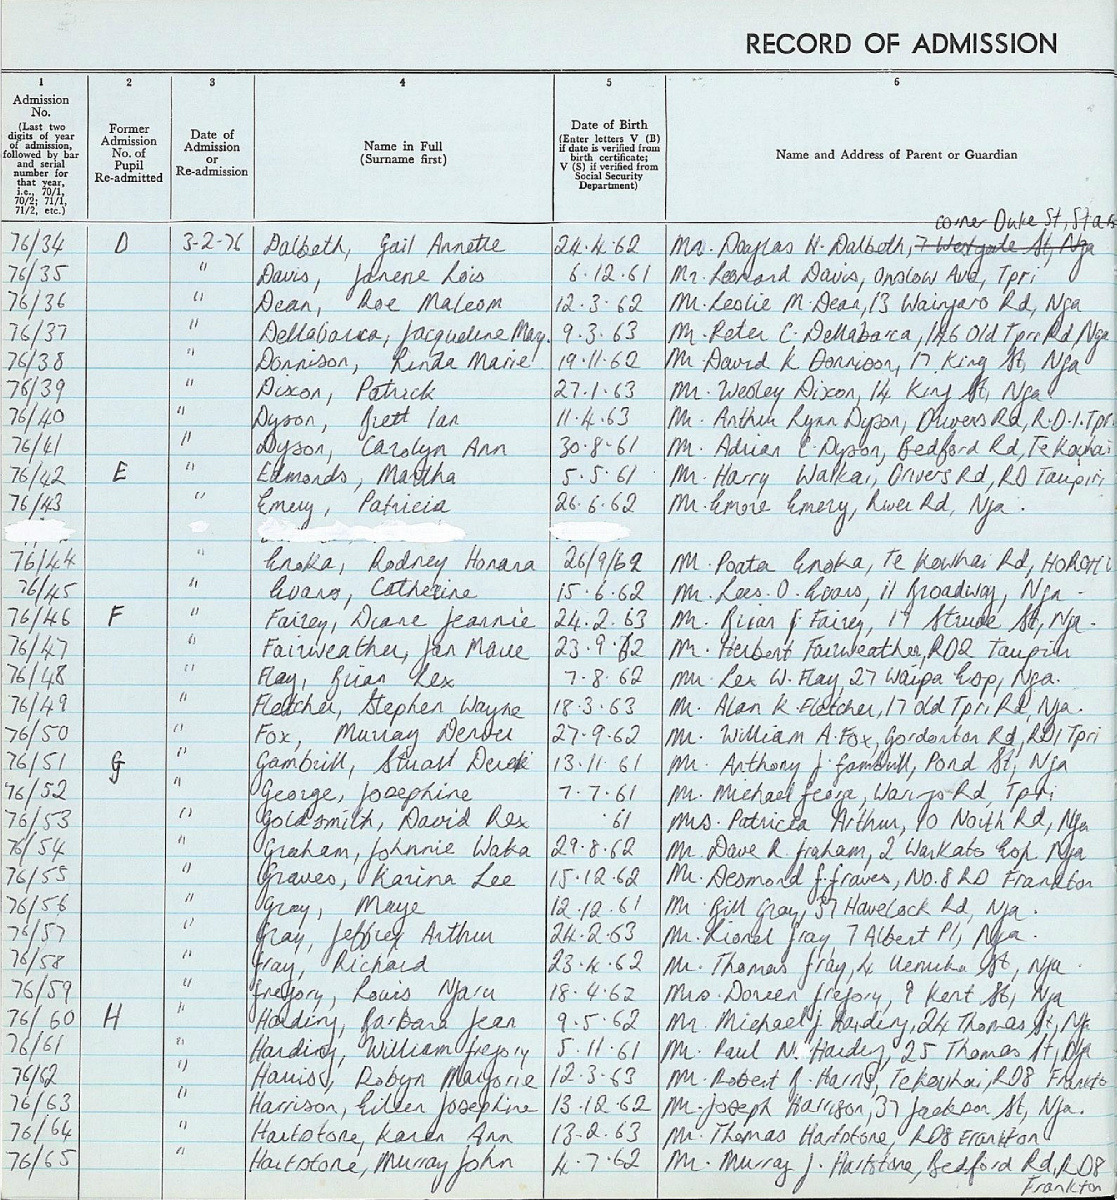 RECORD OF ADMISSION
1 2 3 4 5 6
Admission No. (Last two digits of year of admission, followed by bar and serial number for that year, i.e., 70/1, 70/2; 71/1, 71/2, etc.)
Former Admission No. of Pupil Re-admitted
Date of Admission or Re-admission
Name in Full (Surname first)
Date of Birth (Enter letters V (B) if date is verified from birth certificate; V (S) if verified from Social Security Department)
Name and Address of Parent or Guardian
corner Duke St,
76/34 D 3-2-76 Dalbeth, Gail Annette 24.4.62 Mr. Douglas H. Dalbeth, 7 Westgate St, Nga
76/35 " Davis, Janene Lois 6.12.61 Mr. Leonard Davis, Onslow Ave, Tpri
76/36 " Dean, Roe Malcom 12.3.62 Mr. Leslie M. Dean, 13 Waingaro Rd, Nga
76/37 " Dellabarca, Jacqueline May. 9.3.63 Mr. Peter C. Dellabarca, 146 Old Tpri Rd, Nga
76/38 " Donnison, Linda Marie 19.11.62 Mr. David K Donnison, 17 King St, Nga
76/39 " Dixon, Patrick 27.1.63 Mr. Wesley Dixon, 14 King St, Nga
76/40 " Dyson, Brett Ian 11.4.63 Mr. Arthur Lynn Dyson, Drivers Rd, R.D.1. Tpri
76/41 " Dyson, Carolyn Ann 30.8.61 Mr. Adrian C. Dyson, Bedford Rd, Te Kowhai
76/42 E " Edmonds, Martha 5.5.61 Mr. Harry Waikai, Drivers Rd, RD Taupiri
76/43 " Emery, Patricia 26.6.62 Mr. Emery, River Rd, Nga.
76/44 " Enoka, Rodney Honara 26/9/62 Mr. Poata Enoka, Te Kowhai Rd, HOROTIU
76/45 " Evans, Catherine 15.6.62 Mr. Lees. O. Evans, 11 Broadway, Nga.
76/46 F " Fairey, Diane Jeannie 24.2.63 Mr. Brian J. Fairey, 19 St, Nga.
76/47 " Fairweather, Jan Marie 23.9.62 Mr. Herbert Fairweather, RD2 Taupiri
76/48 " Flay, Brian Lex 7.8.62 Mr. Lex W. Flay, 27 Waipa Esp, Nga.
76/49 " Fletcher, Stephen Wayne 18.3.63 Mr. Alan K Fletcher, 17 Old Tpri Rd, Nga.
76/50 " Fox, Murray Denver 27.9.62 Mr. William A. Fox, Gordonton Rd, RD1 Tpri
76/51 G " Gambrill, Stuart Derek 13.11.61 Mr. Anthony J. Gambrill, Pond St, Nga
76/52 " George, Josephine 7.7.61 Mr. Michael George, Rd, Tpri
76/53 " Goldsmith, David Rex .61 Mrs. Patricia Arthur, 90 North Rd, Nga
76/54 " Graham, Johnnie Waka 29.8.62 Mr. Dave R. Graham, 2 Waikato Esp, Nga
76/55 " Graves, Karina Lee 15.12.62 Mr. Desmond J. Graves, No. 8 RD Frankton
76/56 " Gray, Maye 12.12.61 Mr. Bill Gray, 37 Havelock Rd, Nga.
76/57 " Gray, Jeffrey Arthur 24.2.63 Mr. Lional Gray, 7 Albert Pl, Nga.
76/58 " Gray, Richard 23.4.62 Mr. Thomas Gray, 4 Uenuku St, Nga.
76/59 " Gregory, Louis Ngaru 18.4.62 Mrs. Doreen Gregory, 9 Kent St, Nga
76/60 H " Harding, Barbara Jean 9.5.62 Mr. Michael J. Harding, 24 Thomas St, Nga
76/61 " Harding, William Gregory 5.11.61 Mr. Paul N. Harding, 25 Thomas St, Nga
76/62 " Harris, Robyn Marjorie 12.3.63 Mr. Robert R. Harris, Te Kowhai, RD8 Frankton
76/63 " Harrison, Eileen Josephine 13.12.62 Mr. Joseph Harrison, 37 Jackson St, Nga.
76/64 " Hartstone, Karen Ann 13.2.63 Mr. Thomas Hartstone, RD8 Frankton
76/65 " Hartstone, Murray John 4.7.62 Mr. Murray J. Hartstone, Bedford Rd, RD8
Frankton